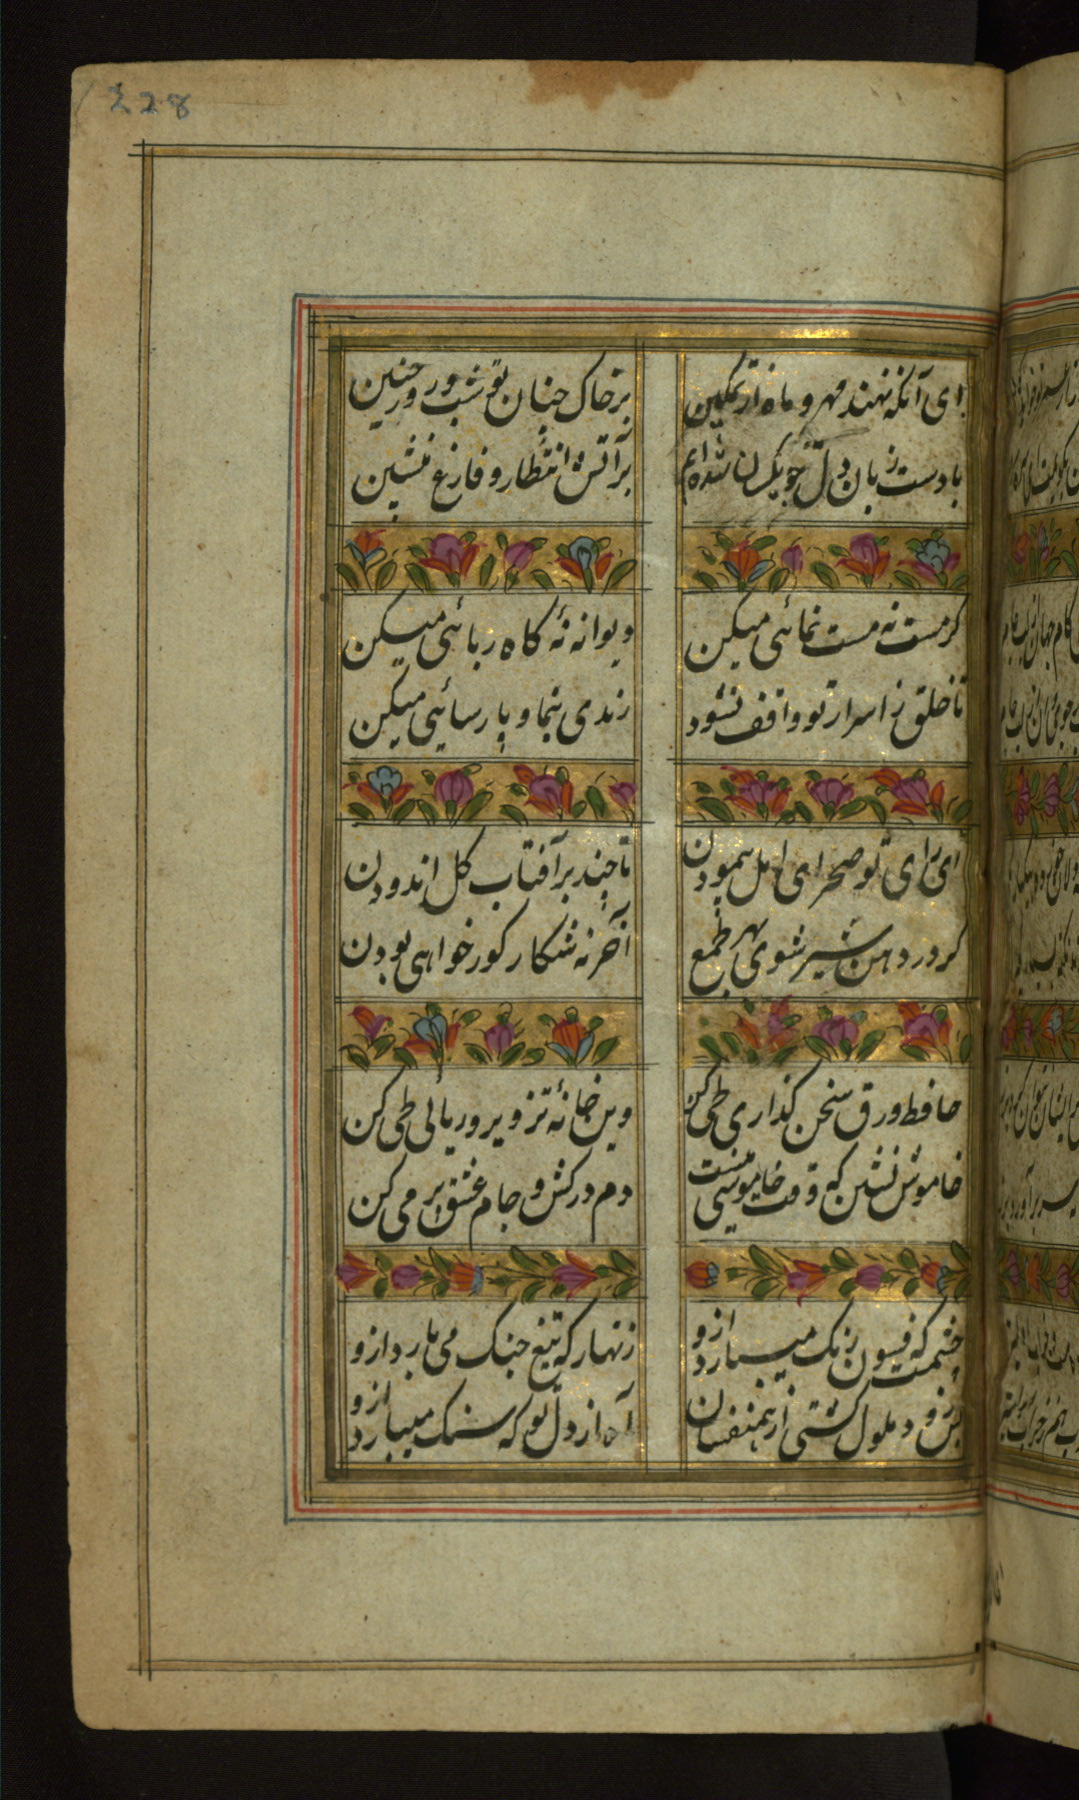 228
ای آنکه نهند مهر و ماه از تمکین
بر خاک جناب تو شب و روز جبین
با دست زبان دل
بر آتش انتظار و فارغ منشین
گر مست نه مست نمائی میکن
دیوانه نهٔ کاه ربائی میکن
تا خلق ز اسرار تو واقف نشود
رندی بنما و پارسائی میکن
ای رای تو صحرای امل پیمودن
تا چند بر آفتاب گل اندودن
گر در دهن شیر شوی بهر طمع
آخر نه شکار گور خواهی بودن
حافظ ورق سخن گذاری طی کن
وین خانهٔ تزویر و ریائی طی کن
خاموش نشین که وقت خاموشیست
دم درکش و جام عشق پر می کن
چشمت که فسون رنگ میبارد ازو
زنهار که تیغ جنگ می بارد ازو
بس زود ملول گشتی از همنفسان
آه از دل تو که سنگ میبارد ازو